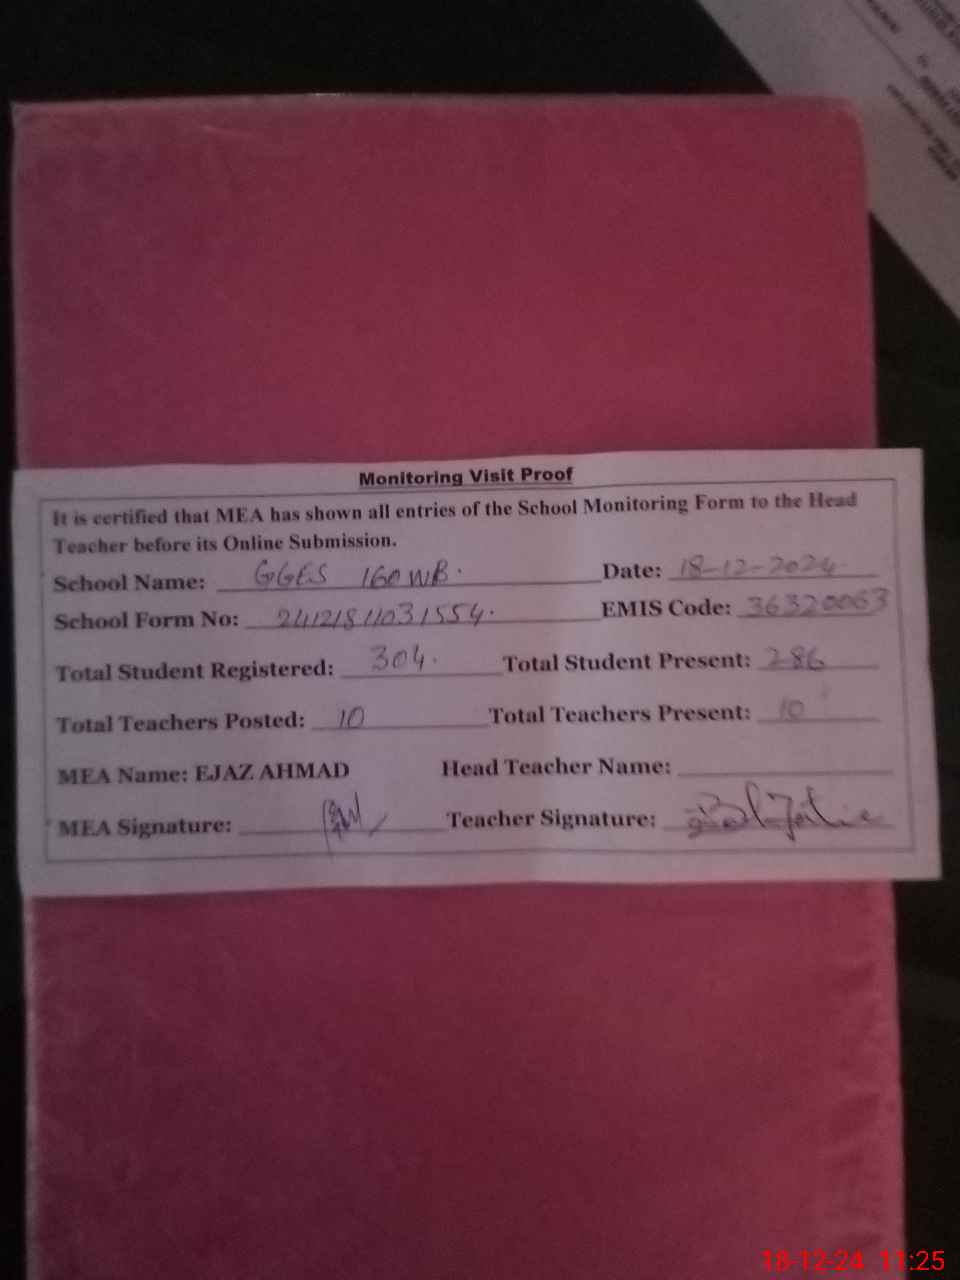 Monitoring Visit Proof
It is certified that MEA has shown all entries of the School Monitoring Form to the Head
Teacher before its Online Submission.
School Name: GGES 160 WB. Date: 18-12-2024
School Form No: 24121811031554. EMIS Code: 36320063
Total Student Registered: 304. Total Student Present: 286
Total Teachers Posted: 10 Total Teachers Present: 10
MEA Name: EJAZ AHMAD Head Teacher Name:
MEA Signature: Teacher Signature:
18-12-24 11:25